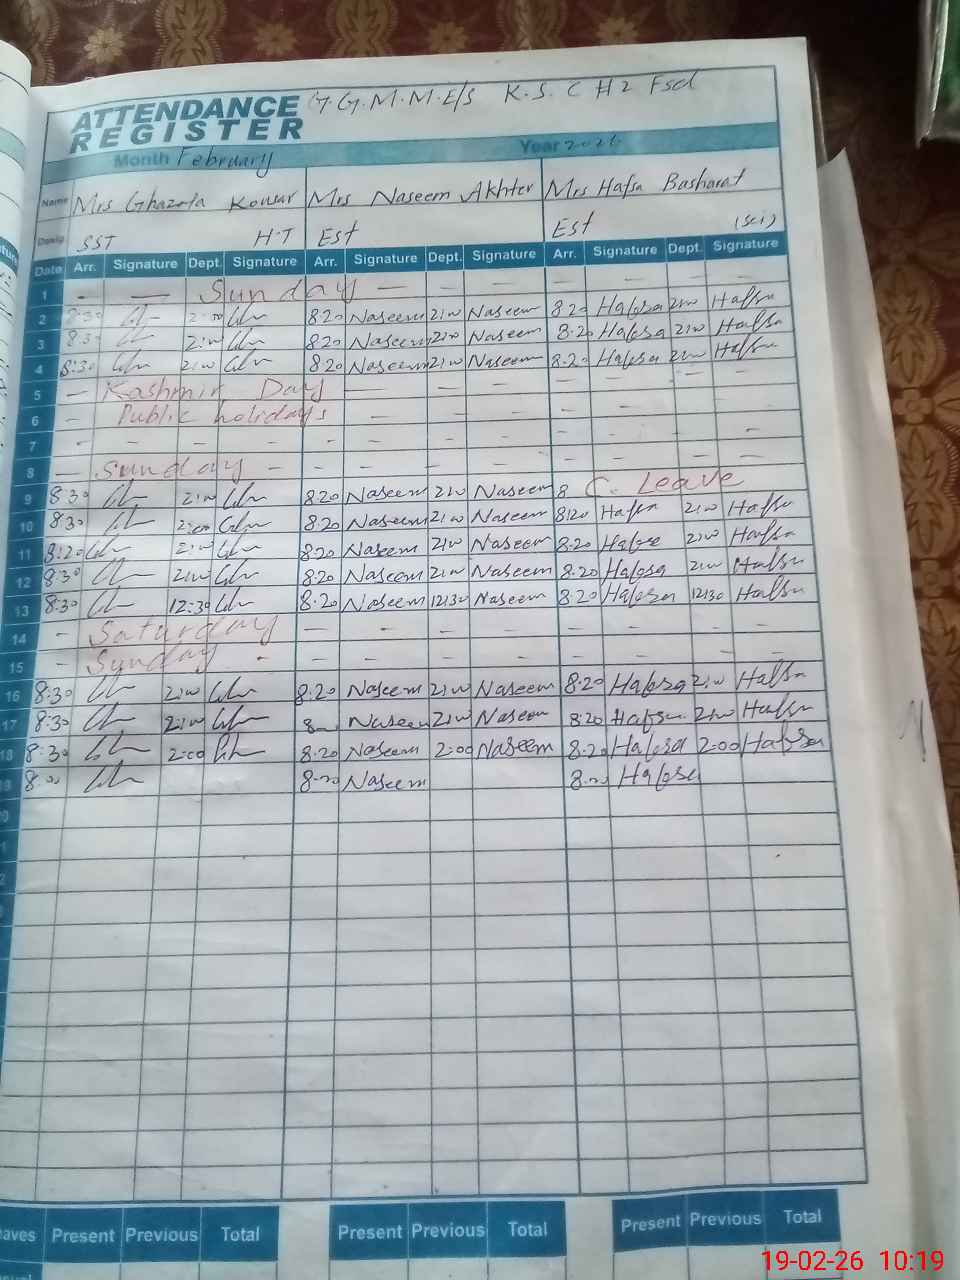 ATTENDANCE G.G.M.M.E/S K.S.C H2 Fsd
REGISTER
Month February Year 2026
Name Mrs Ghazala Kousar Mrs Naseem Akhter Mrs Hafsa Basharat
Desig. SST H.T Est Est (Sci)
Date Arr. Signature Dept. Signature Arr. Signature Dept. Signature Arr. Signature Dept. Signature
1 - — Sunday — - - - - - - -
2 8:30 2:00 820 Naseem 2:00 Naseem 820 Hafsa 2:00 Hafsa
3 8:30 2:00 820 Naseem 2:00 Naseem 8:20 Hafsa 2:00 Hafsa
4 8:30 2:00 820 Naseem 2:00 Naseem 8:20 Hafsa 2:00 Hafsa
5 - Kashmir Day - - - - - - - -
6 - Public holidays - - - - - - -
7 - - - - - - - - - - - -
8 - Sunday - - - - - - - - -
9 8:30 2:00 820 Naseem 2:00 Naseem 8 C. Leave
10 8:30 2:00 8:20 Naseem 2:00 Naseem 8:20 Hafsa 2:00 Hafsa
11 8:20 2:00 820 Naseem 2:00 Naseem 8:20 Hafsa 2:00 Hafsa
12 8:30 2:00 8:20 Naseem 2:00 Naseem 8:20 Hafsa 2:00 Hafsa
13 8:30 12:30 8:20 Naseem 12:30 Naseem 8:20 Hafsa 12:30 Hafsa
14 - Saturday - - - - - - - -
15 - Sunday - - - - - - - - -
16 8:30 2:00 8:20 Naseem 2:00 Naseem 8:20 Hafsa 2:00 Hafsa
17 8:30 2:00 8 Naseem 2:00 Naseem 8:20 Hafsa 2:00 Hafsa
18 8:30 2:00 8:20 Naseem 2:00 Naseem 8:20 Hafsa 2:00 Hafsa
19 8:00 Naseem Hafsa
Present Previous Total Present Previous Total Present Previous Total
19-02-26 10:19